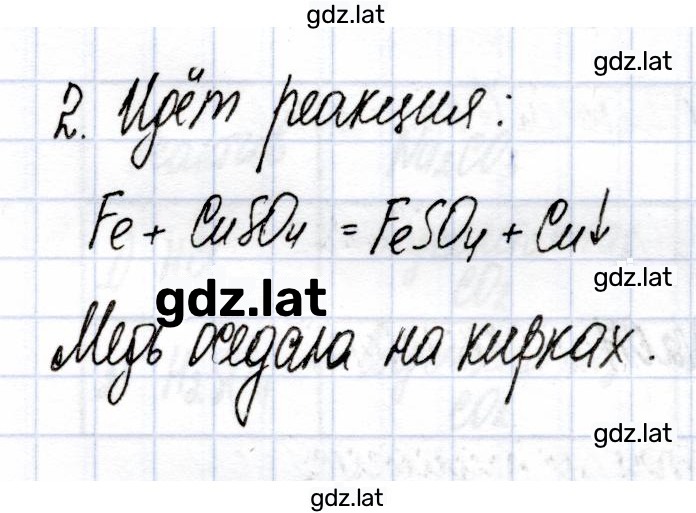 gdz.lat
gdz.lat
2. Идёт реакция:
Fe + CuSO4 = FeSO4 + Cu↓
gdz.lat
gdz.lat
Медь оседала на кирках.
gdz.lat
gdz.lat